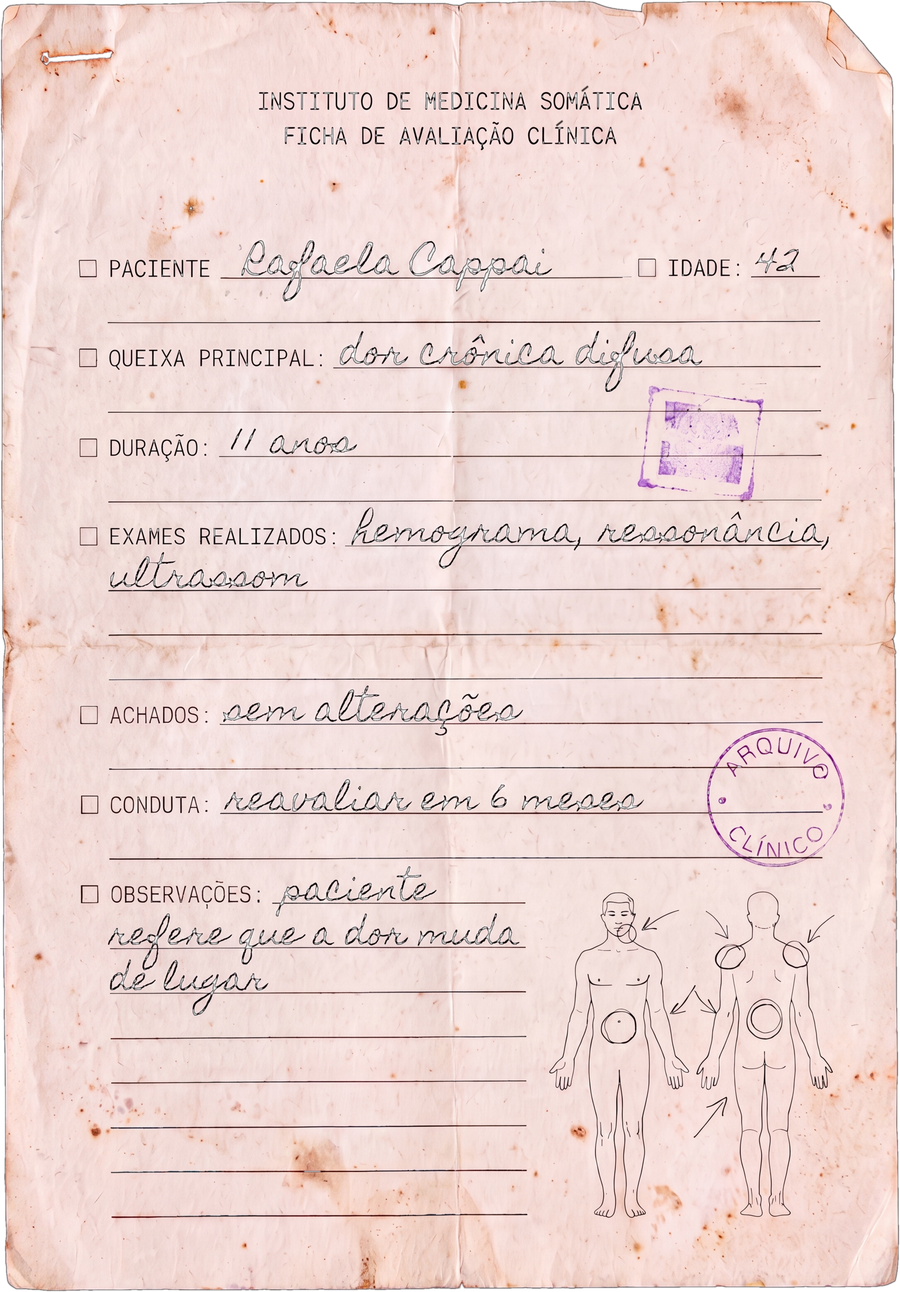 INSTITUTO DE MEDICINA SOMÁTICA
FICHA DE AVALIAÇÃO CLÍNICA
PACIENTE Rafaela Cappai IDADE: 42
QUEIXA PRINCIPAL: dor crônica difusa
DURAÇÃO: 11 anos
EXAMES REALIZADOS: hemograma, ressonância,
ultrassom
ACHADOS: sem alterações
CONDUTA: reavaliar em 6 meses
ARQUIVO
CLÍNICO
OBSERVAÇÕES: paciente
refere que a dor muda
de lugar